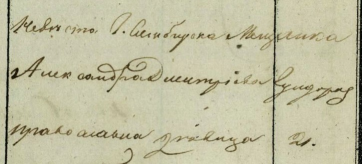 Невѣста г. Симбирска Мещанка
Александра Дмитріева
православна дѣвица 21.